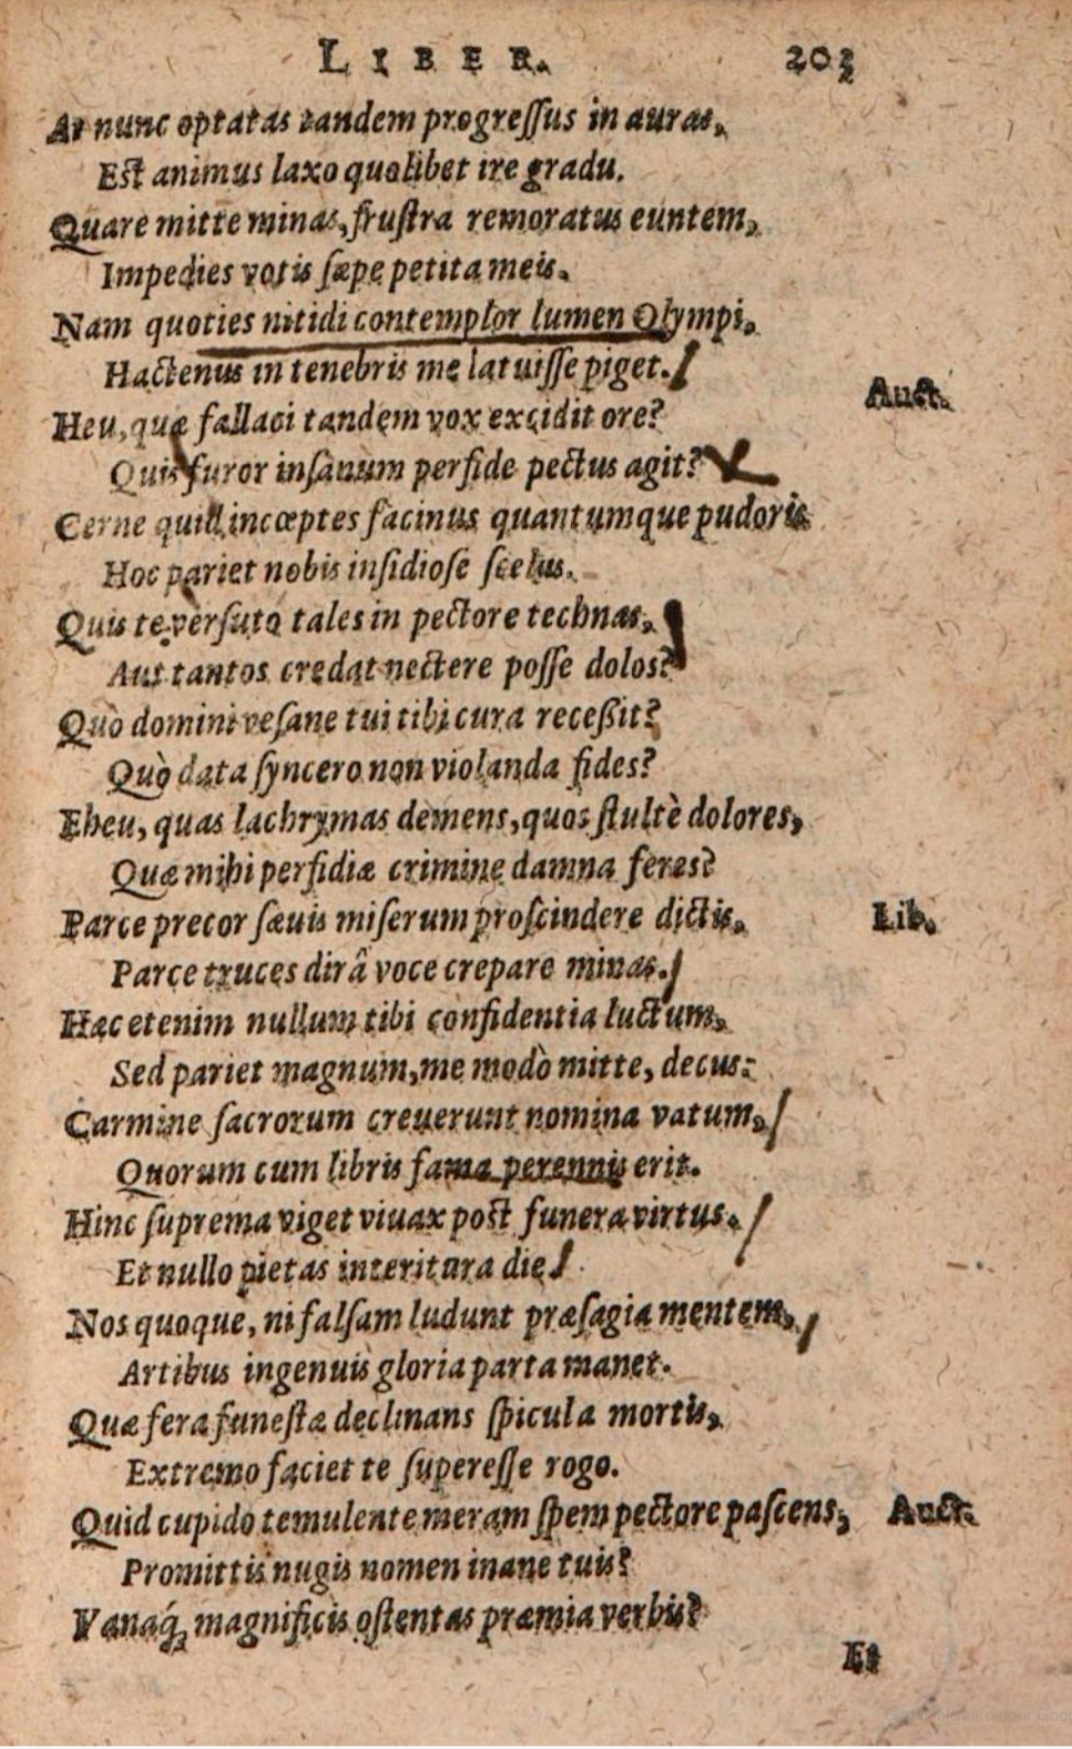 LIBER. 203
At nunc optatas tandem progreſſus in auras,
Eſt animus laxo quolibet ire gradu.
Quare mitte minas, fruſtra remoratus euntem,
Impedies votis ſæpe petita meis.
Nam quoties nitidi contemplor lumen Olympi,
Hactenus in tenebris me latuiſſe piget.
Auct.
Heu, quæ fallaci tandem vox excidit ore?
Quis furor inſanum perfide pectus agit?
Cerne quid incœptes facinus quantumque pudoris
Hoc pariet nobis inſidioſe ſcelus.
Quis te verſuto tales in pectore technas,
Aut tantos credat nectere poſſe dolos?
Quò domini veſane tui tibi cura receßit?
Quò data ſyncero non violanda fides?
Eheu, quas lachrymas demens, quos ſtultè dolores,
Quæ mihi perfidiæ crimine damna feres?
Parce precor ſævis miſerum proſcindere dictis, Lib.
Parce truces dirâ voce crepare minas.
Hæc etenim nullum tibi confidentia luctum,
Sed pariet magnum, me modò mitte, decus:
Carmine ſacrorum creuerunt nomina vatum,
Quorum cum libris fama perennis erit.
Hinc ſuprema viget viuax poſt funera virtus,
Et nullo pietas interitura die.
Nos quoque, ni falſam ludunt præſagia mentem,
Artibus ingenuis gloria parta manet.
Quæ fera funeſtæ declinans ſpicula mortis,
Extremo faciet te ſupereſſe rogo.
Quid cupido temulente meram ſpem pectore paſcens, Auct.
Promittis nugis nomen inane tuis?
Vanaq́; magnificis oſtentas præmia verbis?
Et